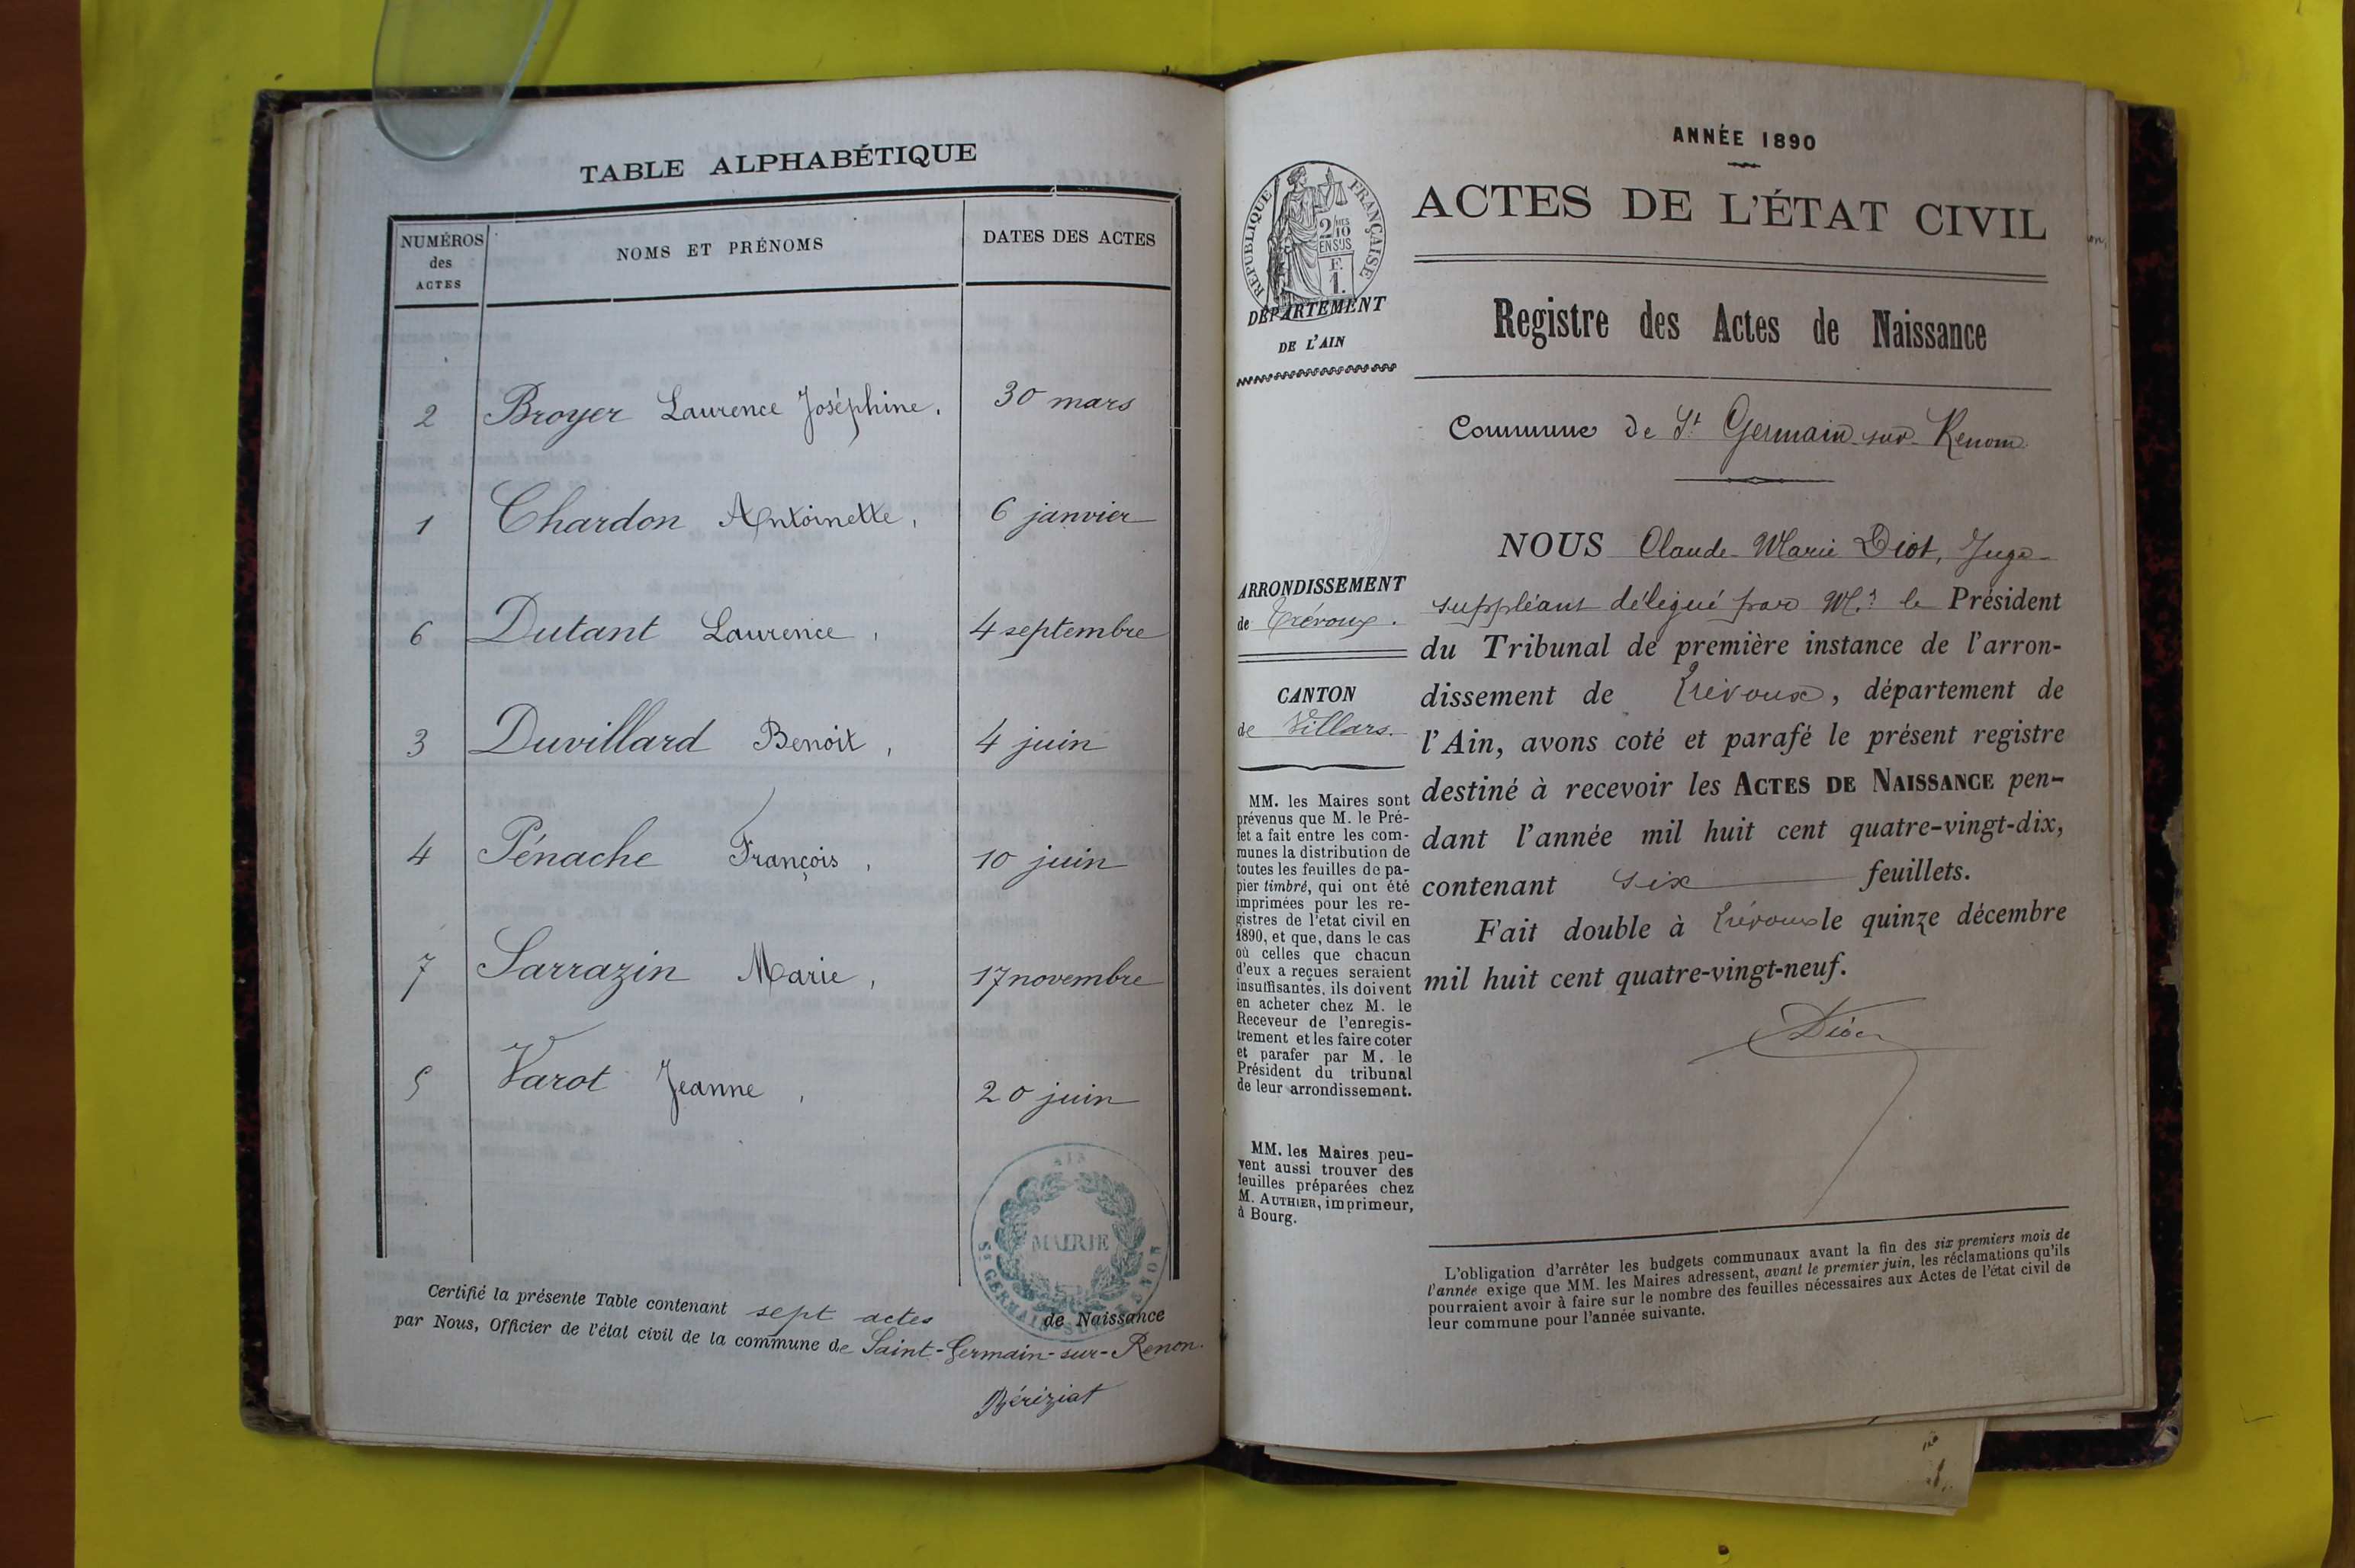 TABLE ALPHABÉTIQUE
NUMÉROS des ACTES
NOMS ET PRÉNOMS
DATES DES ACTES
2 Broyer Laurence Joséphine. 30 mars
1 Chardon Antoinette, 6 janvier
6 Dutant Laurence, 4 septembre
3 Duvillard Benoit, 4 juin
4 Pénache François, 10 juin
7 Sarrazin Marie, 17 novembre
5 Varot Jeanne, 20 juin
AIN
MAIRIE
ST GERMAIN SUR RENON
Certifié la présente Table contenant sept actes de Naissance
par Nous, Officier de l'état civil de la commune de Saint-Germain-sur-Renon.
Bériziat
ANNÉE 1890
ACTES DE L'ÉTAT CIVIL
Registre des Actes de Naissance
Commune de St Germain-sur-Renom
RÉPUBLIQUE FRANÇAISE
2/10 MES
EN SUS
F.
1.
DÉPARTEMENT
DE L'AIN
ARRONDISSEMENT
de Trévoux.
CANTON
de Villars.
MM. les Maires sont
prévenus que M. le Pré-
fet a fait entre les com-
munes la distribution de
toutes les feuilles de pa-
pier timbré, qui ont été
imprimées pour les re-
gistres de l'etat civil en
1890, et que, dans le cas
où celles que chacun
d'eux a reçues seraient
insuffisantes, ils doivent
en acheter chez M. le
Receveur de l'enregis-
trement et les faire coter
et parafer par M. le
Président du tribunal
de leur arrondissement.
MM. les Maires peu-
vent aussi trouver des
feuilles préparées chez
M. AUTHIER, imprimeur,
à Bourg.
NOUS Claude-Marie Diot, Juge-
suppléant délégué par Mr. le Président
du Tribunal de première instance de l'arron-
dissement de Trévoux, département de
l'Ain, avons coté et parafé le présent registre
destiné à recevoir les ACTES DE NAISSANCE pen-
dant l'année mil huit cent quatre-vingt-dix,
contenant six feuillets.
Fait double à Trévoux le quinze décembre
mil huit cent quatre-vingt-neuf.
Diot
L'obligation d'arrêter les budgets communaux avant la fin des six premiers mois de
l'année exige que MM. les Maires adressent, avant le premier juin, les réclamations qu'ils
pourraient avoir à faire sur le nombre des feuilles nécessaires aux Actes de l'état civil de
leur commune pour l'année suivante.